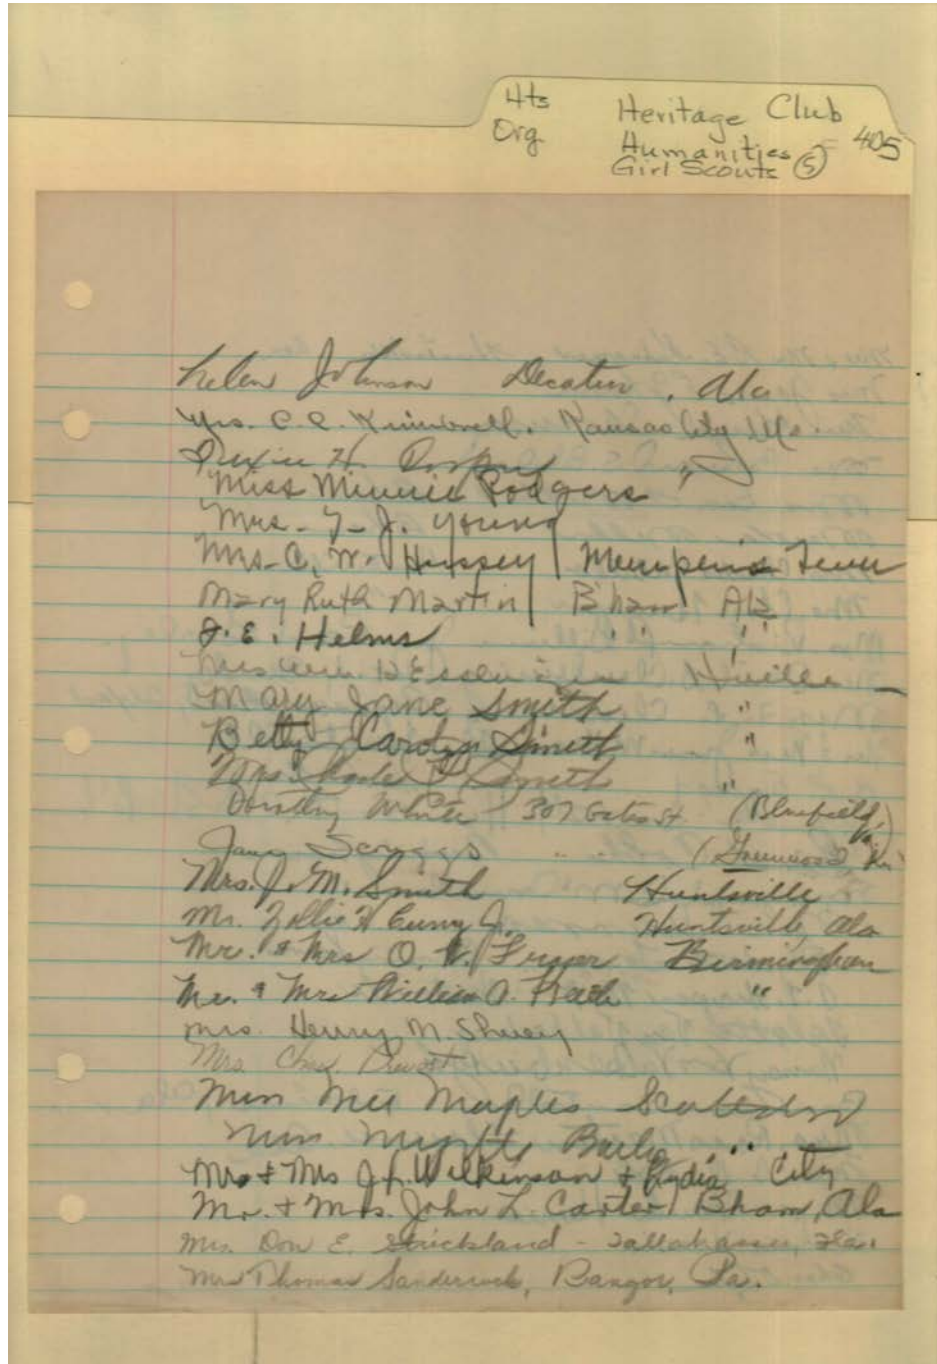 Hts Heritage Club
Org Humanities (5) = 405
Girl Scouts
Helen Johnson Decatur, Ala
Mrs. C. C. Kimbrell. Kansas City Mo.
H. "
Miss Minnie Rodgers
Mrs. T. J. Young
Mrs. C. W. Hussey / Memphis Tenn
Mary Ruth Martin / B'ham Ala
J. E. Helms " " "
Mrs Wm. H'ville
Mary Jane Smith "
Betty Carolyn Smith "
Mrs. Smith "
Dorothy White 307 Gates St (Bluefield, Va.)
Scruggs " " (Greenwood,
Mrs. J. M. Smith Huntsville
Mr. Zollie H Huntsville, Ala
Mr. & Mrs O. W. Birmingham
Mr. & Mrs William A. "
Mrs. Henry M.
Mrs. Chas.
Miss Maples Scottsboro
Miss " "
Mr & Mrs J. Wilkinson & Lydia City
Mr. & Mrs. John L. Carter / Bham, Ala
Mrs. Don E. Strickland - Tallahassee, Fla.
Mrs Thomas Bangor, Pa.